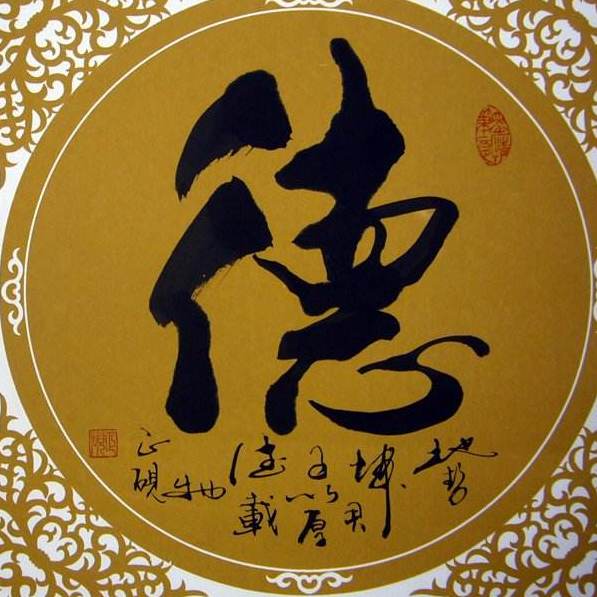 德
地势
坤君
子以厚
德載
物
正硯